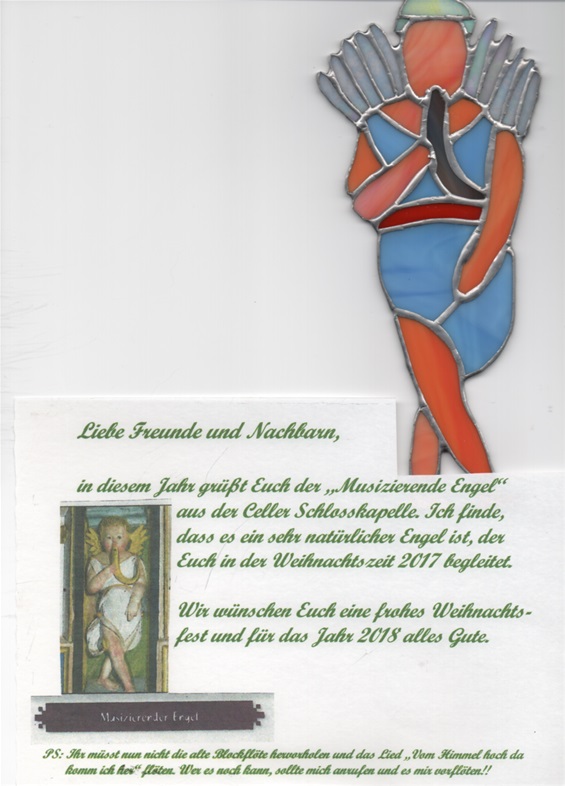 Liebe Freunde und Nachbarn,
in diesem Jahr grüßt Euch der „Musizierende Engel“
aus der Celler Schlosskapelle. Ich finde,
dass es ein sehr natürlicher Engel ist, der
Euch in der Weihnachtszeit 2017 begleitet.
Wir wünschen Euch eine frohes Weihnachts-
fest und für das Jahr 2018 alles Gute.
Musizierender Engel
PS: Ihr müsst nun nicht die alte Blockflöte hervorholen und das Lied „Vom Himmel hoch da
komm ich her“ flöten. Wer es noch kann, sollte mich anrufen und es mir vorflöten!!